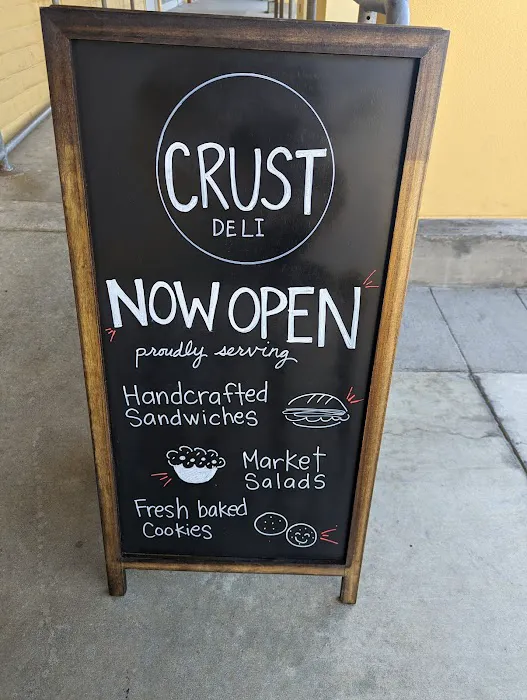 CRUST
DELI
NOW OPEN
proudly serving
Handcrafted
Sandwiches
Market
Salads
Fresh baked
Cookies